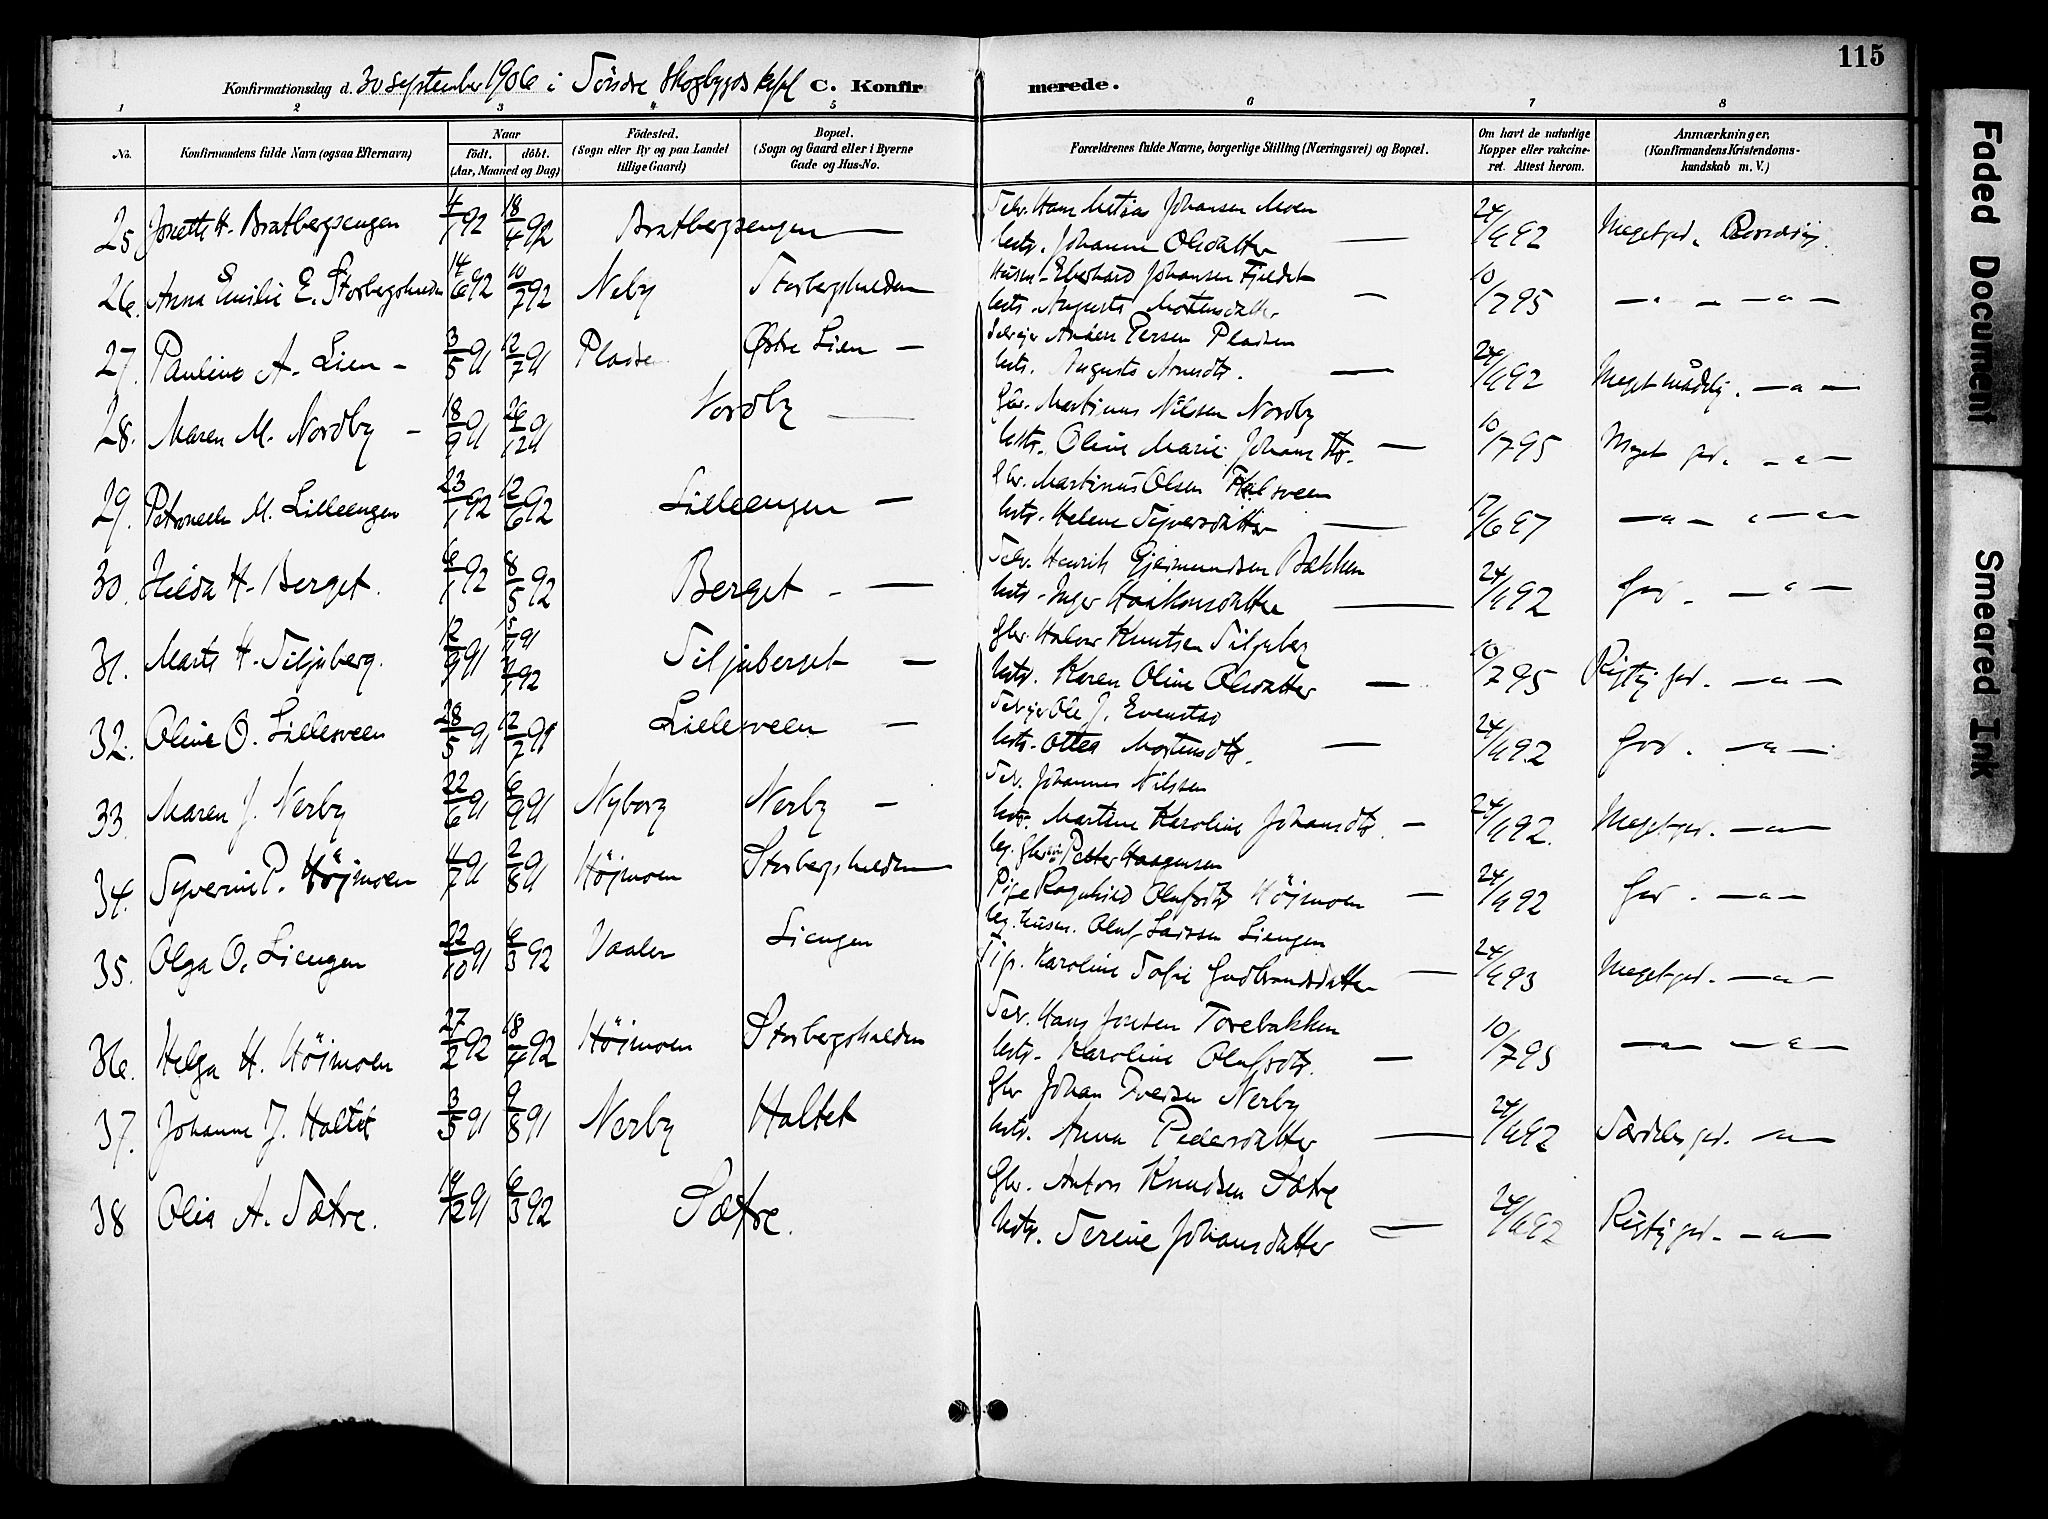 115
Konfirmationsdag d. 30 september 1906 i Söndre Skogbygds kpl C. Konfirmerede.
1 2 3 4 5 6 7 8
No. Konfirmandens fulde Navn (ogsaa Efternavn) Naar födt. döbt. (Aar, Maaned og Dag) Födested. (Sogn eller By og paa Landet tillige Gaard) Bopæl. (Sogn og Gaard eller i Byerne Gade og Hus-No. Forældrenes fulde Navne, borgerlige Stilling (Næringsvei) og Bopæl. Om havt de naturlige Kopper eller vakcineret. Attest herom. Anmærkninger, (Konfirmandens Kristendomskundskab m. V.)
25 Josette H. Bratbergsengen 4/1 92 18/4 92 Bratbergsengen — Selv. Hans Matias Johansen Moen
Hustr. Johanne Olsdatter — 24/9 92 Meget god.
26. Anna Emilie E. Storbergshulden 14/6 92 10/7 92 Neby Storbergshulden Husm. Eberhard Johansen Fjeldet
Hustr. Augusta Mortensdatter — 10/7 95 — " — " —
27. Pauline A. Lien - 3/5 91 12/7 91 Østre Lien — Selvejer Anders Persen Pladsen
Hustr. Augusta — 24/9 92 Meget mådelig. — " —
28. Maren M. Nordby - 18/9 91 26/12 91 Nordby — Gbr. Martinus Nilsen Nordby
Hustr. Oline Marie Johansdtr. — 10/7 95 Meget god. - " —
29. Petronelle M. Lilleengen 23/1 92 12/6 92 Lilleengen — Gbr. Martinus Olsen
Hustr. Helene Syversdatter — 17/6 97 — " — " — " —
30. Hilda H. Berget. 6/1 92 8/5 92 Berget - — Selv. Henrik Gjermundsen Bakken
Hustr. Inger Haakonsdatter — 24/9 92 God. — " —
31. Marte H. Siljuberg. 12/9 91 15/11 91 1/1 92 Siljuberget — Gbr. Halvor Knutsen Siljuberg
Hustr. Karen Oline Olsdatter — 10/7 95 Rigtig god. — " —
32. Oline O. Lillesveen 28/5 91 12/7 91 Lillesveen — Selvejer Ole J. Evenstad
Hustr. Ottea Mortensdtr. — 24/9 92 God. — " —
33. Maren J. Nerby 22/6 91 6/9 91 Nyborg Nerby — Selv. Johannes Nilsen
Hustr. Martine Karoline Johansdtr. — 24/9 92. Meget god. — " —
34. Syverine P. Höjmoen 4/7 91 2/8 91 Höjmoen Storbergshulden Petter Haagensen
Pige Ragnhild Olufsdtr Höjmoen — 24/9 92 God. — " —
35. Olga O. Liengen 22/10 91 6/3 92 Vaaler Liengen Husm. Oluf Larsen Liengen
Karoline Sofie Gudbrandsdatter — 24/9 93 Meget god. — " —
36. Helga H. Höjmoen 27/2 92 18/4 92 Höjmoen Storbergshulden Selv. Hans Jonsen Torebakken
Hustr. Karoline Olufsdtr. — 10/7 95 — " — — " —
37. Johanne J. Haltet 3/5 91 9/8 91 Nerby Haltet Gbr Johan Iversen Nerby
Hustr. Anna Pedersdatter — 24/9 92 Særdeles god. — " —
38 Olia A. Sætre. 14/12 91 6/3 92 Sætre. Gbr. Anton Knudsen Sætre
Hustr. Serine Johansdatter — 24/9 92 Rigtig god. — " —
Faded Document
Smeared Ink